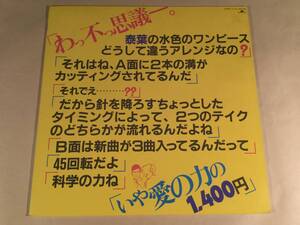 「わっ不っ思議ー。
泰葉の水色のワンピース
どうして違うアレンジなの?
「それはね、A面に2本の溝が
カッティングされてるんだ」
「それでえ………??」
「だから針を降ろすちょっとした
タイミングによって、2つのテイク
のどちらかが流れるんだよね」
「B面は新曲が3曲入ってるんだって」
「45回転だよ」
「科学の力ね」
「いや愛の力の
1,400円」